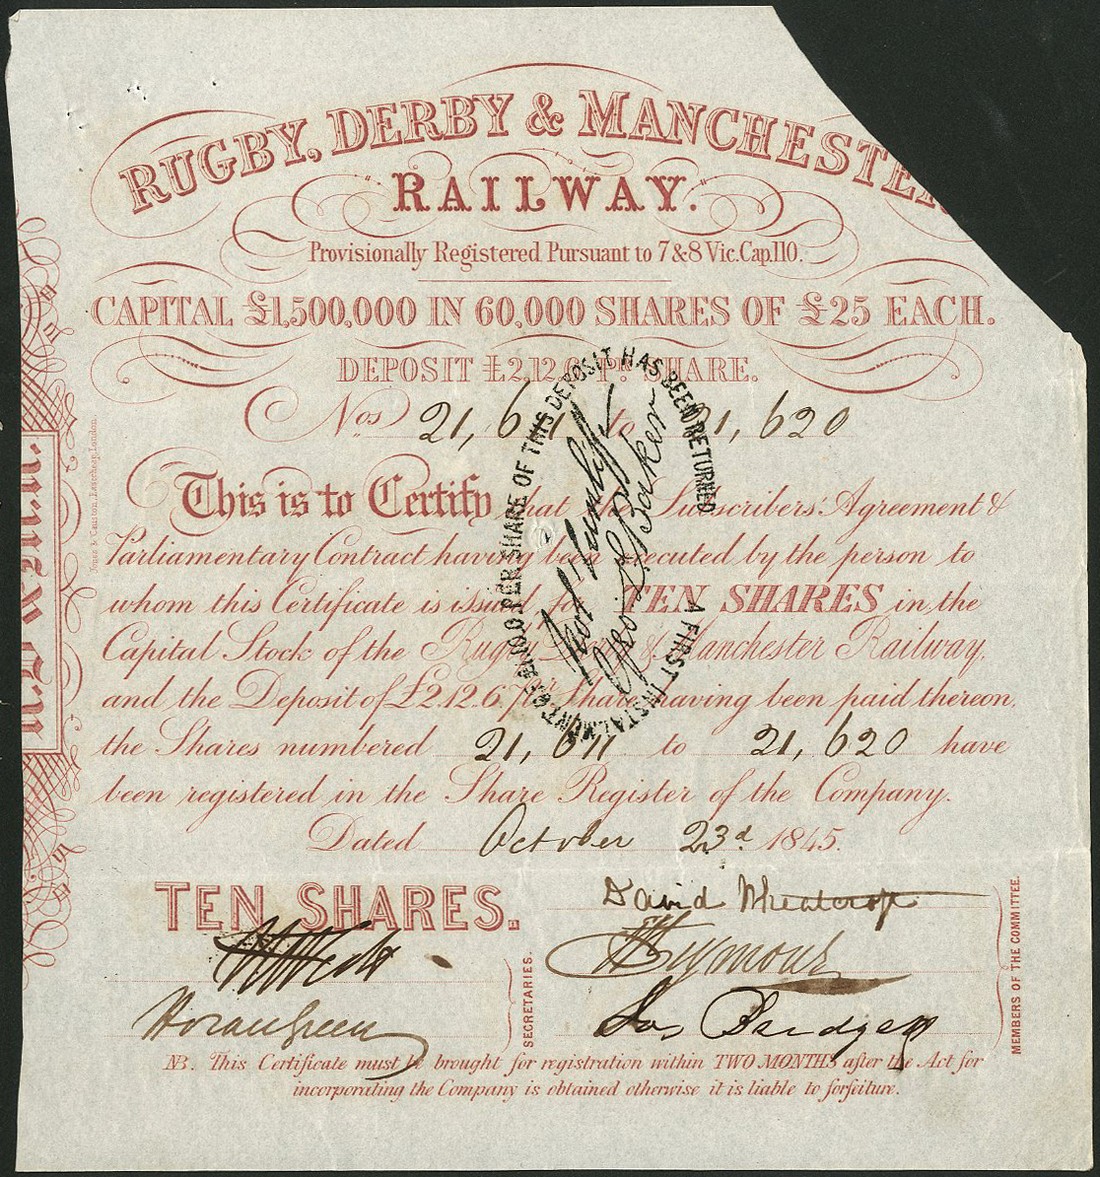 RUGBY, DERBY & MANCHESTER
"RAILWAY."
Provisionally Registered Pursuant to 7 & 8 Vic. Cap. 110.
CAPITAL £1,500,000 IN 60,000 SHARES OF £25 EACH.
DEPOSIT £2,12,6 Pr. SHARE.
Nos 21,611 to 21,620
This is to Certify that the Subscribers' Agreement &
Parliamentary Contract having been executed by the person to
whom this Certificate is issued, for TEN SHARES in the
Capital Stock of the Rugby Derby & Manchester Railway,
and the Deposit of £2.12.6. per Share having been paid thereon,
the Shares numbered 21,611 to 21,620 have
been registered in the Share Register of the Company.
Dated October 23d. 1845.
TEN SHARES.
David Wheatcroft
Seymour
Horan Green
SECRETARIES.
MEMBERS OF THE COMMITTEE.
NB. This Certificate must be brought for registration within TWO MONTHS after the Act for
incorporating the Company is obtained otherwise it is liable to forfeiture.
A FIRST INSTALMENT OF PER SHARE OF THIS DEPOSIT HAS BEEN RETURNED
Geo. Baker